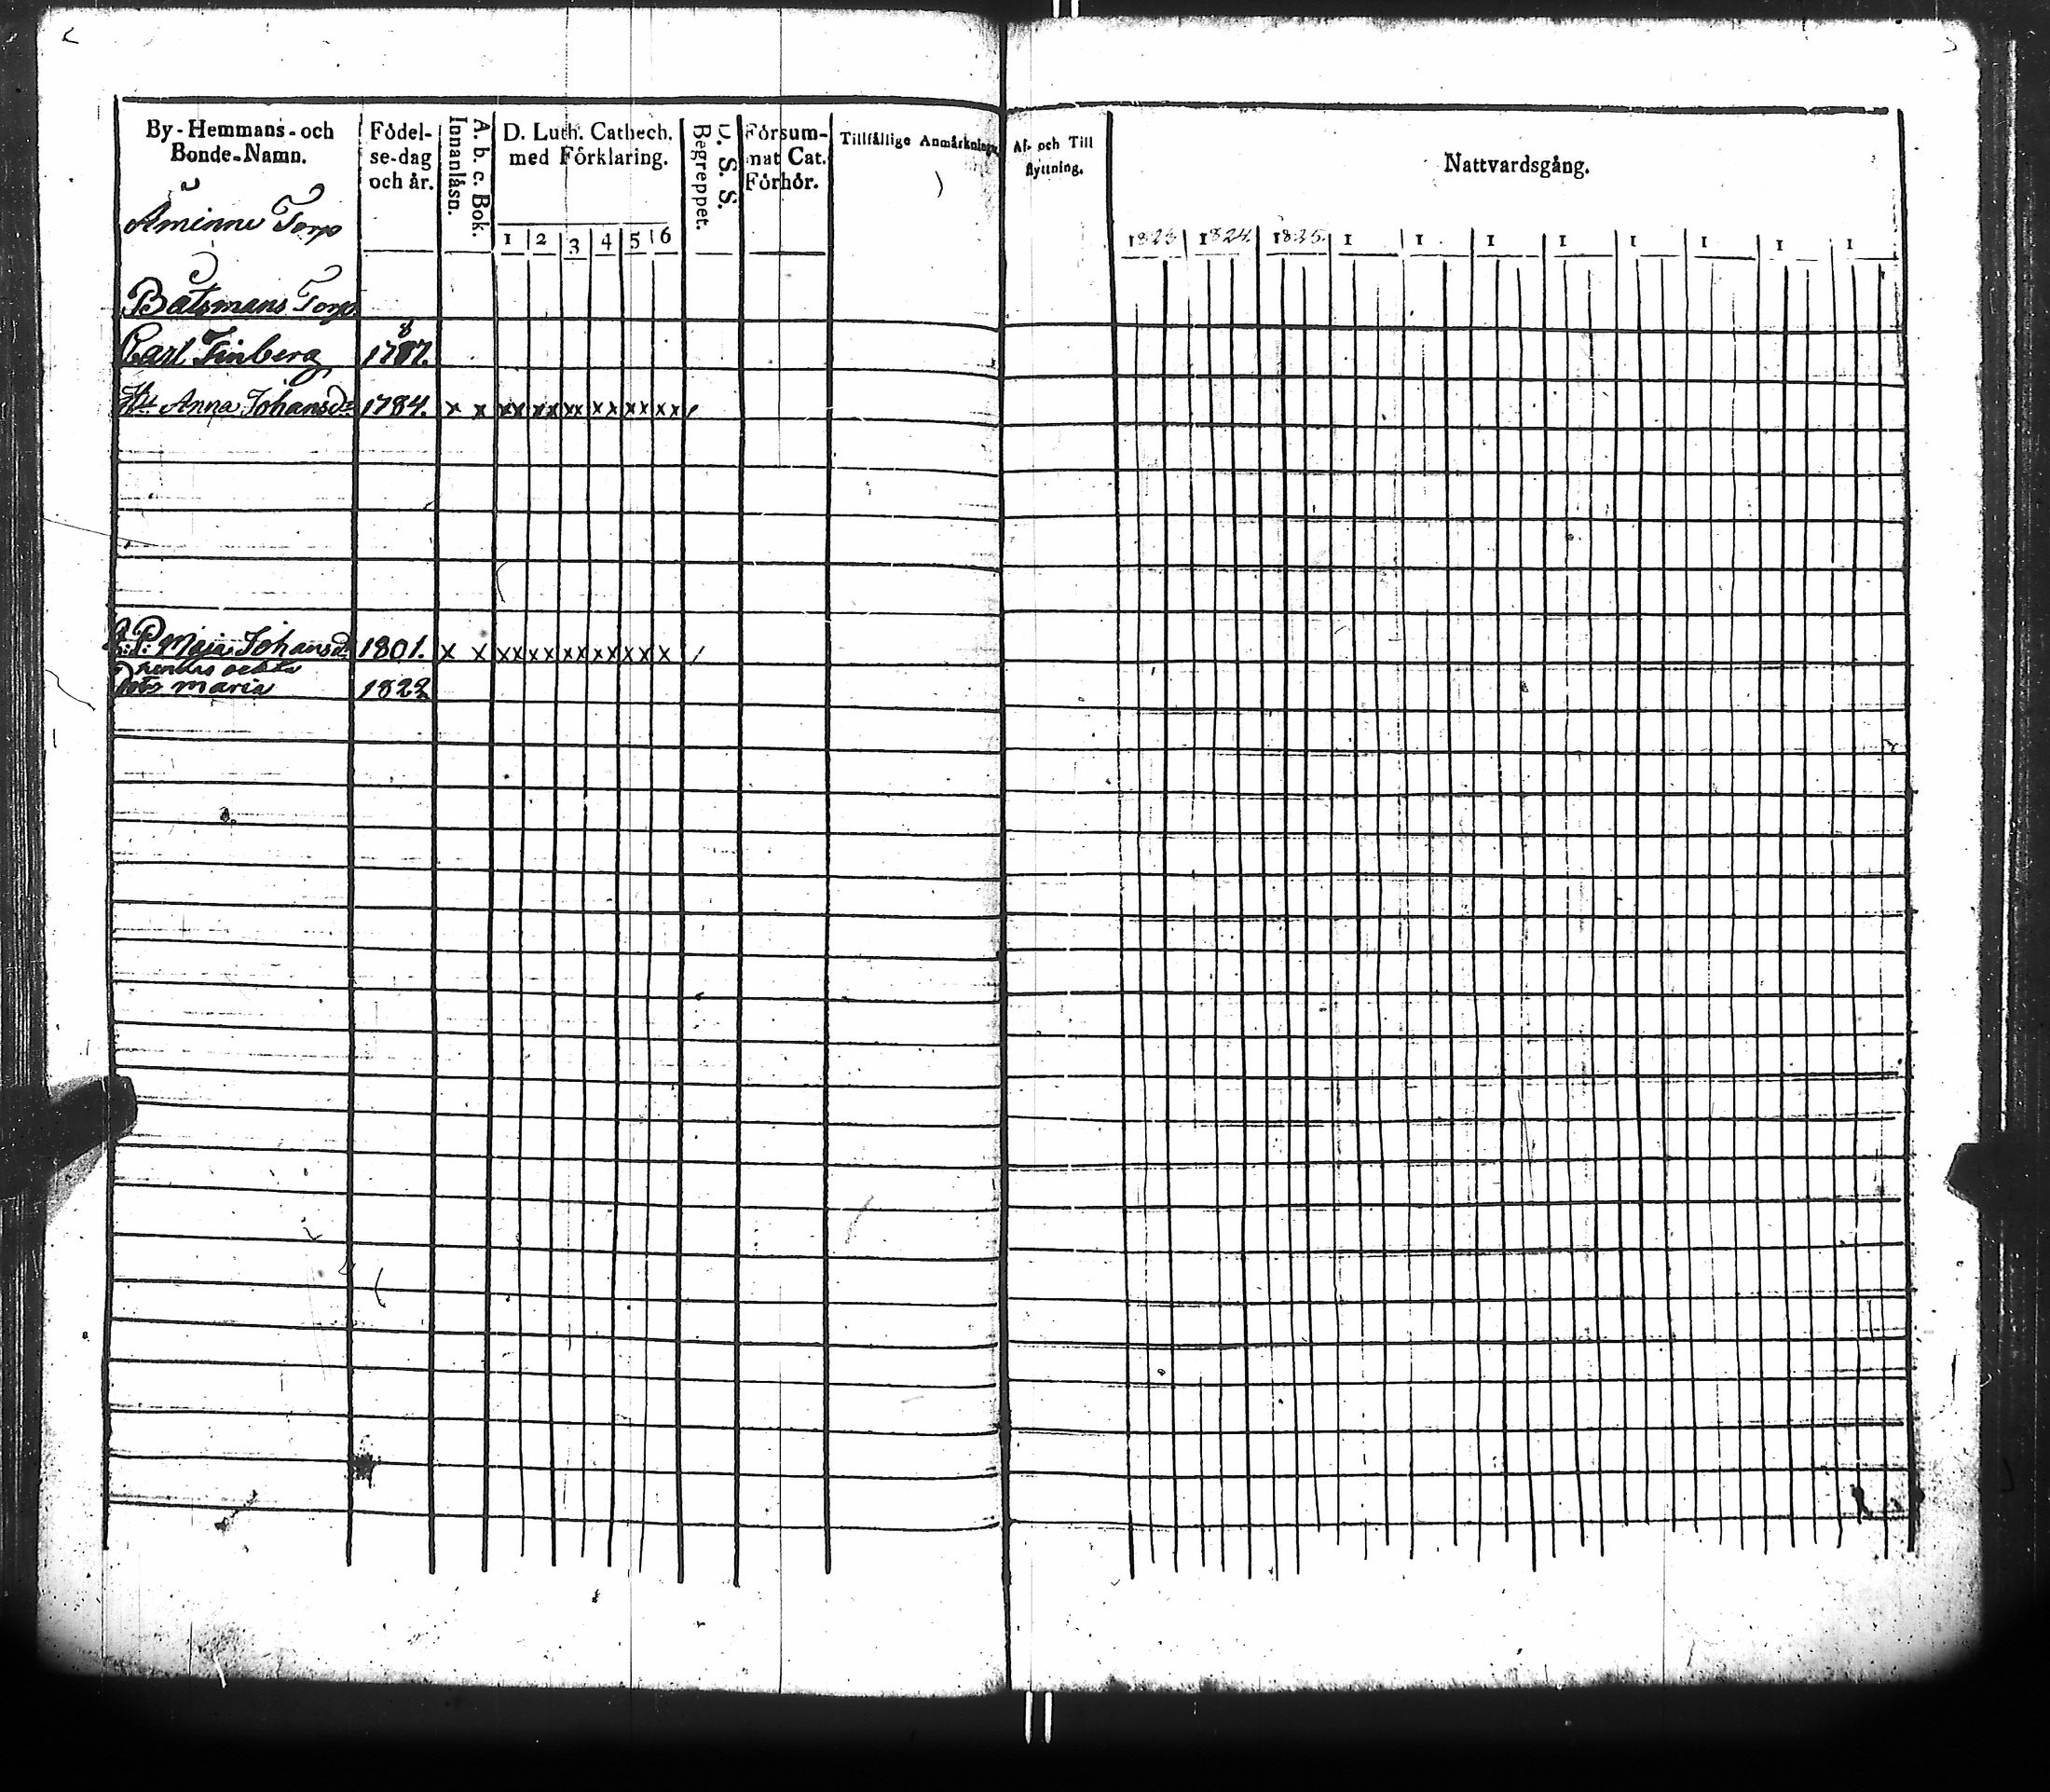 By-Hemmans-och Bonde-Namn.
Födel-se-dag och år.
A. b. c. Bok.
Innanläsn.
D. Luth. Cathech. med Förklaring.
1 2 3 4 5 6
D. S. S.
Begreppet.
Försum-nat Cat. Förhör.
Tillfällige Anmärkningar
Af- och Till flyttning.
Nattvardsgång.
1823 1824. 1825. 1 1 1 1 1 1 1 1
Åminne Torp
Båtsmans Torp
Carl Finberg 1787. 8
Hu Anna Johansdr 1784. x x xx xx xx xx xx xx
Maja Johansd. 1801. x x xx xx xx xx xx x
hennes oekta
Dotr maria 1822